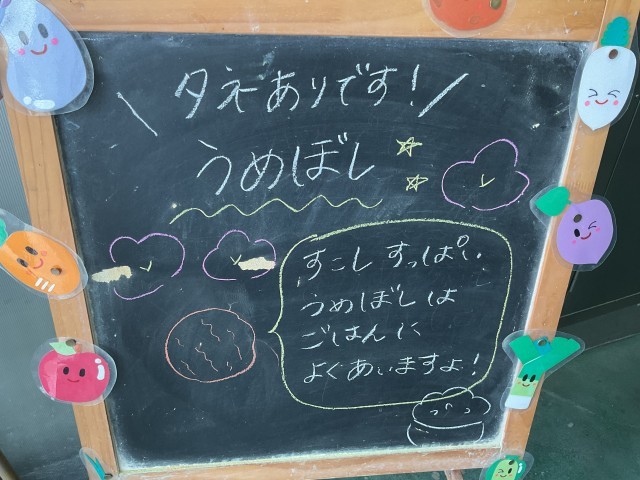 タネありです!
うめぼし
すこし すっぱい
うめぼしは
ごはんに
よくあいますよ!